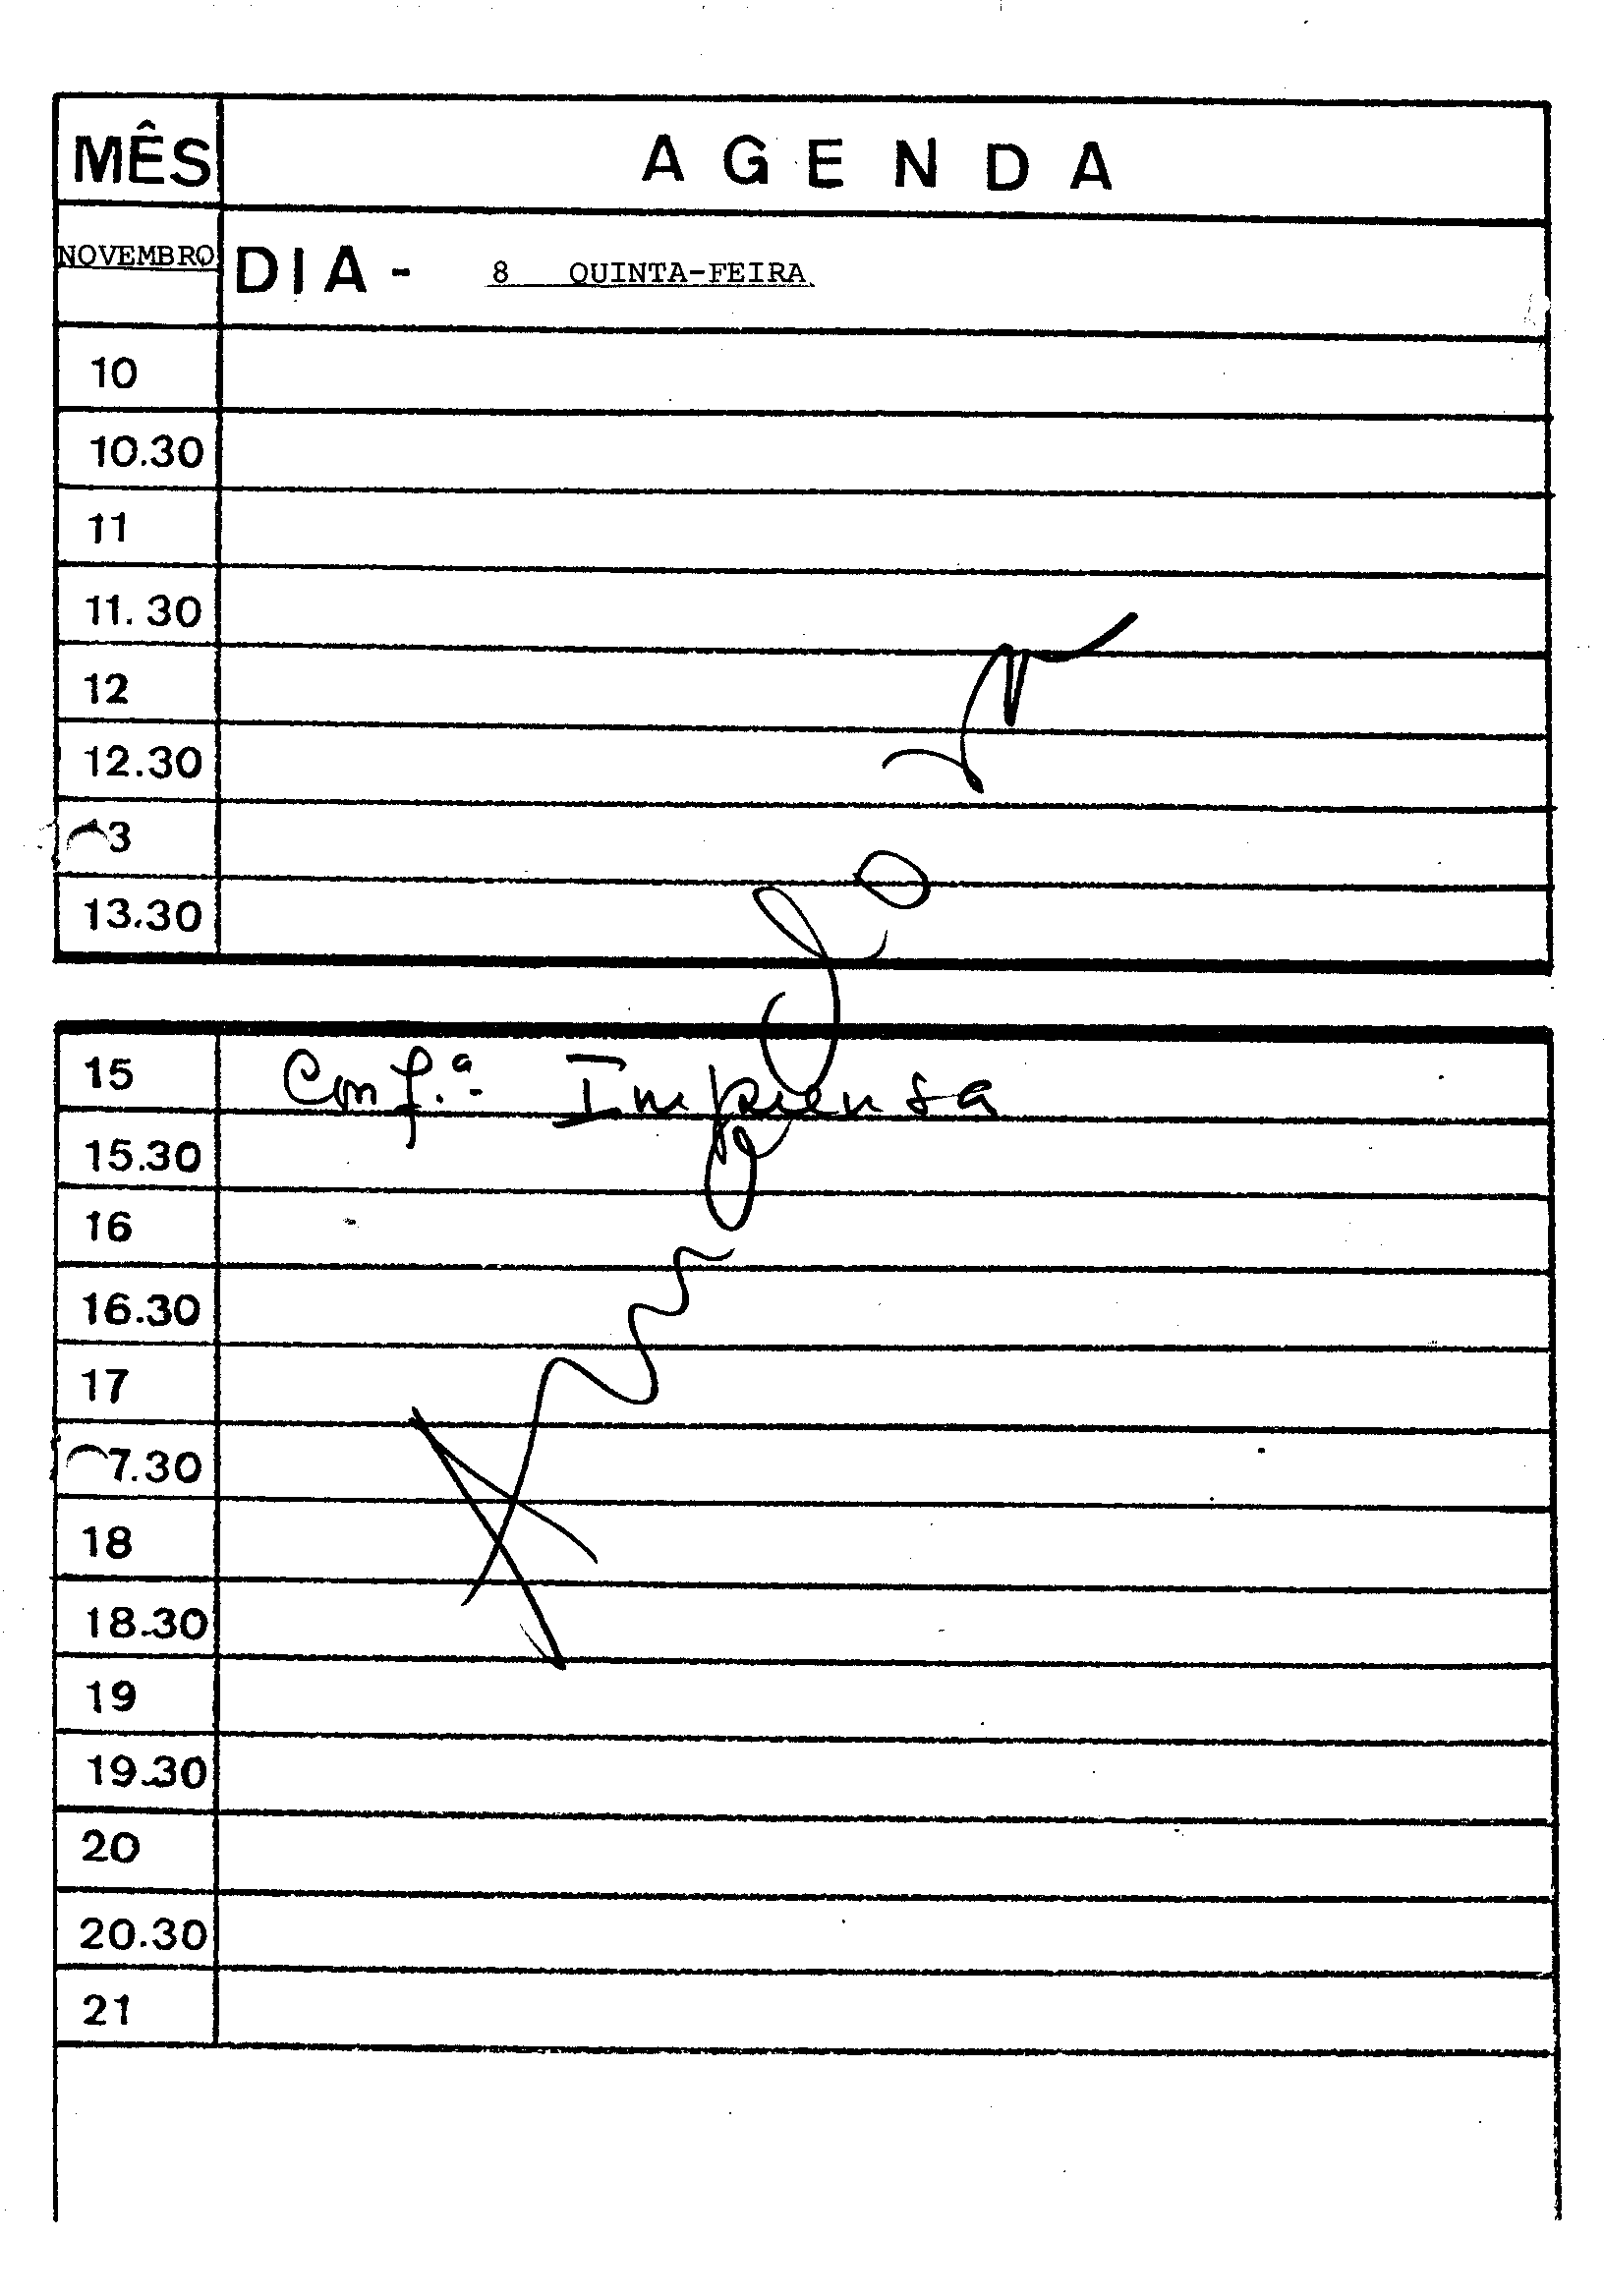 MÊS AGENDA
NOVEMBRO DIA - 8 QUINTA-FEIRA
10
10.30
11
11.30
12
12.30
3
13.30
15 Conf.ª Imprensa
15.30
16
16.30
17
7.30
18
18.30
19
19.30
20
20.30
21